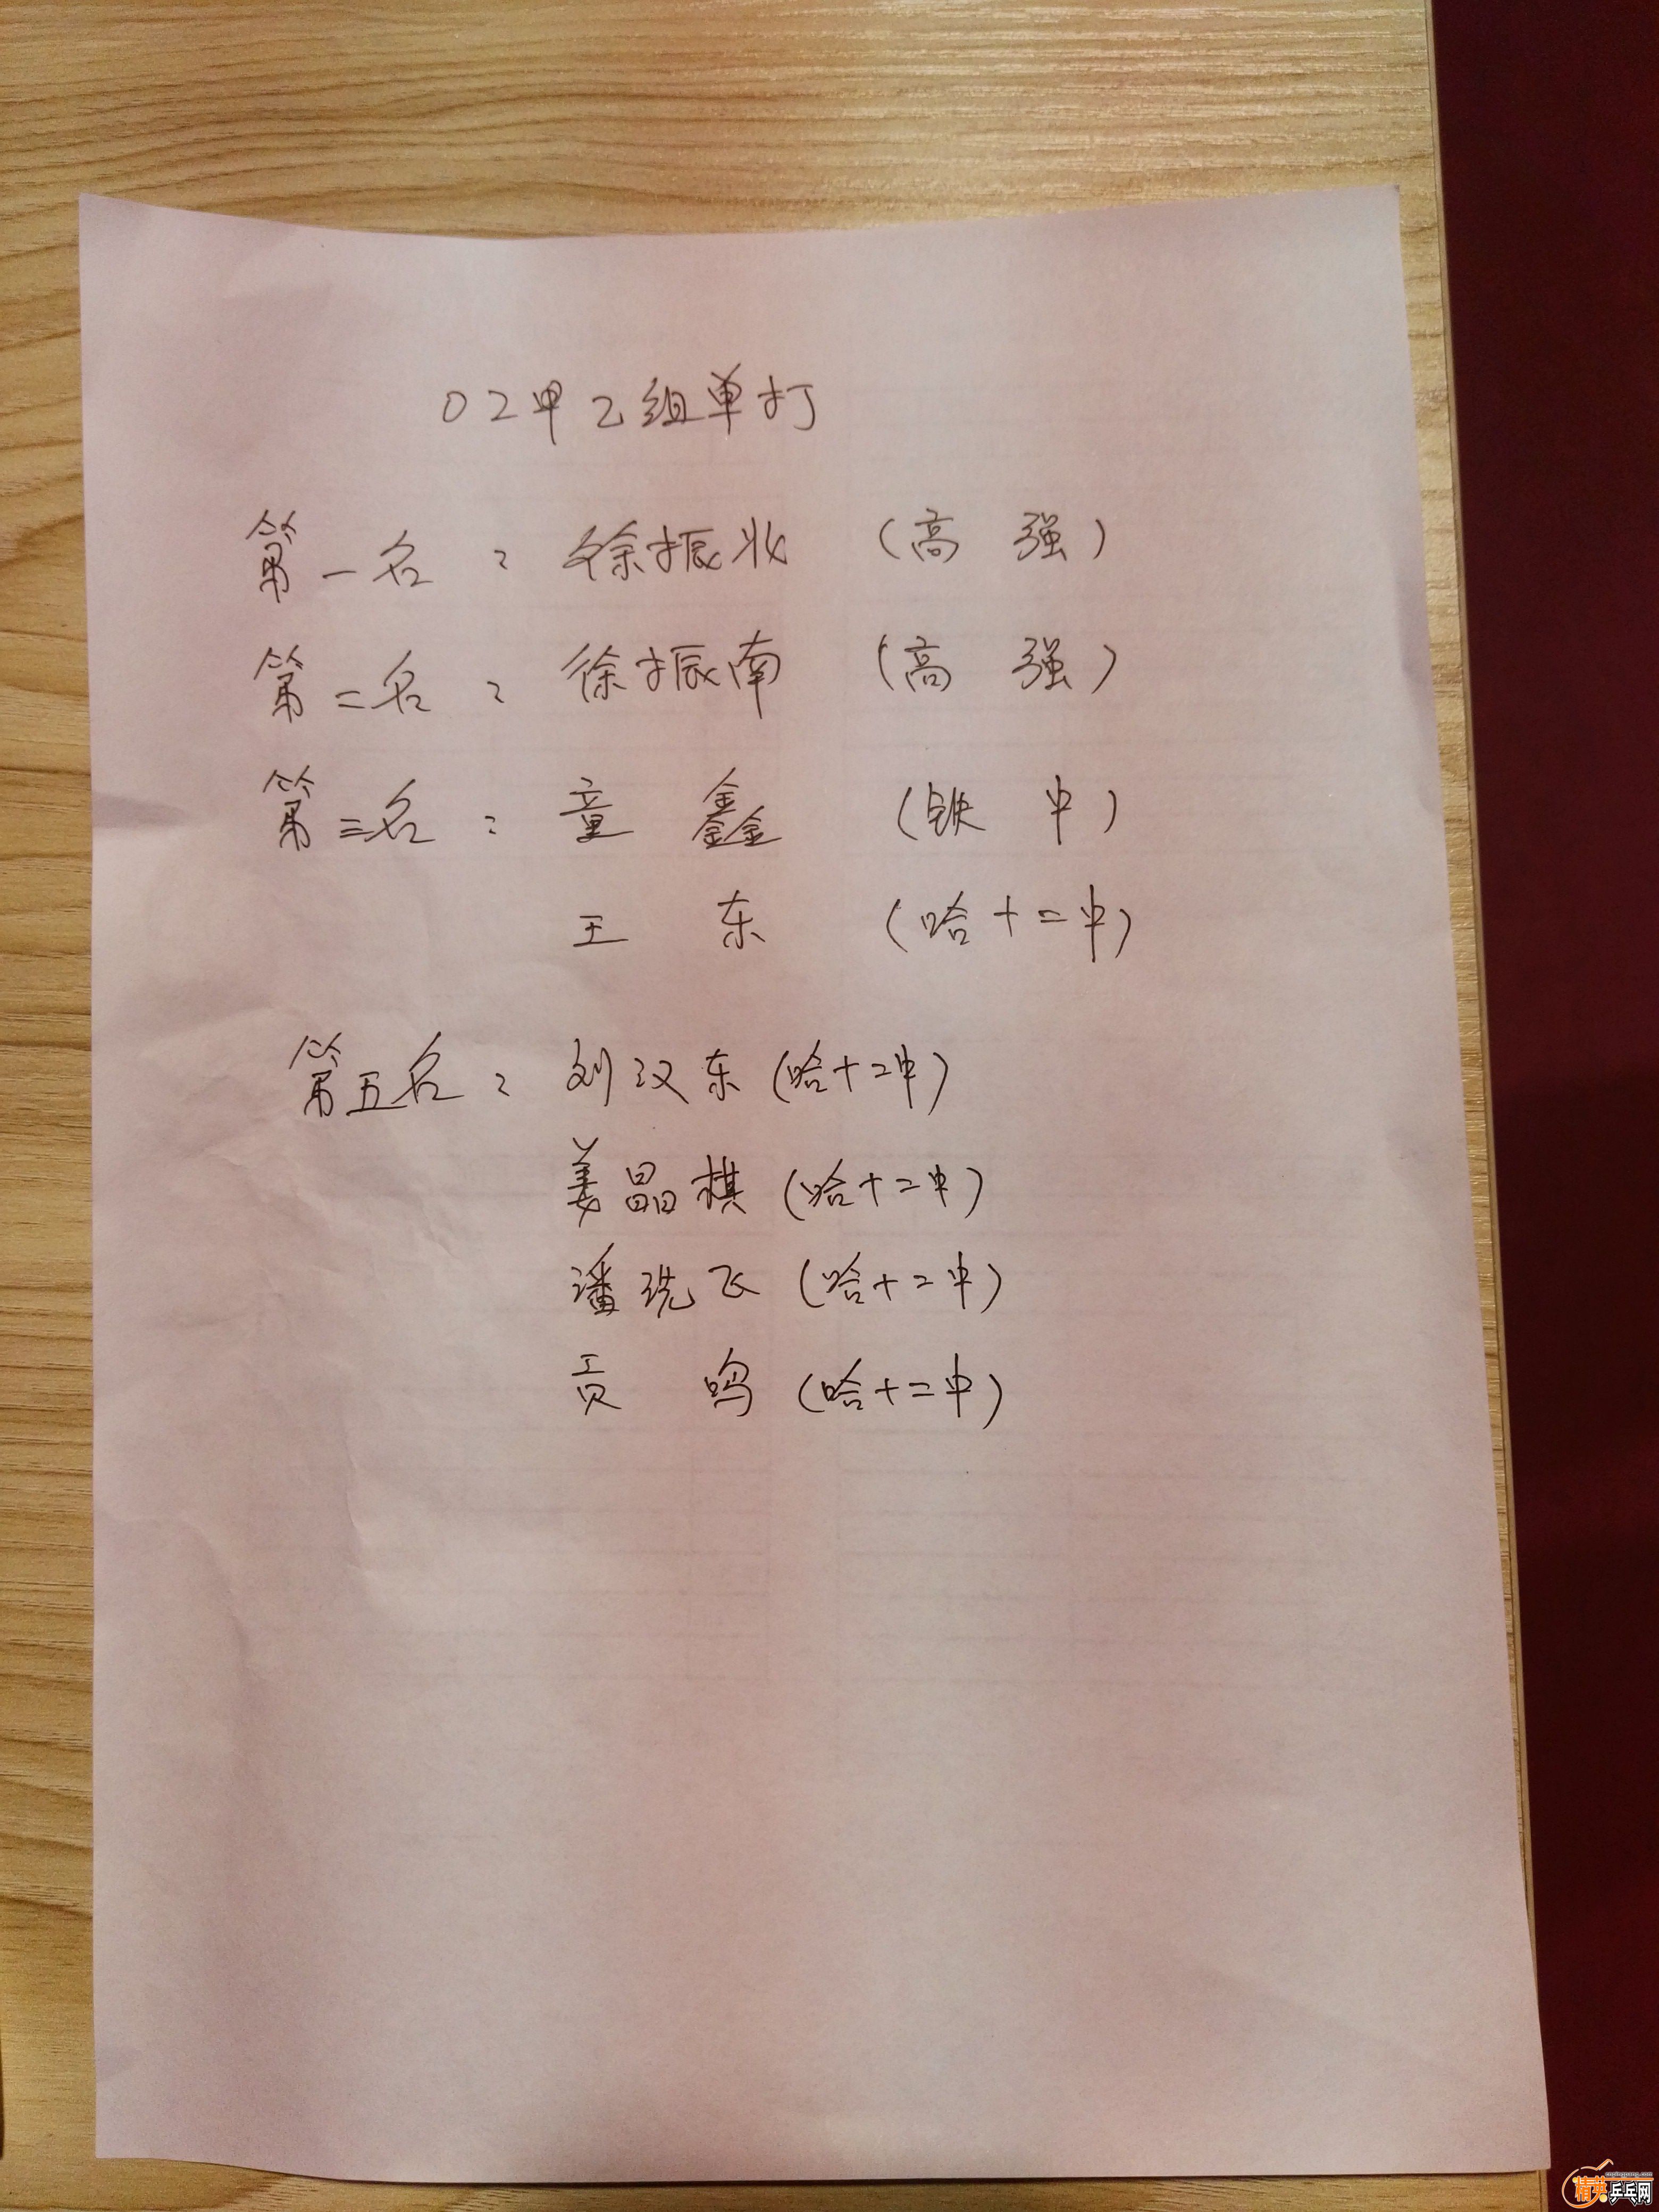 02甲乙组单打
第一名：徐振北（高 强）
第二名：徐振南（高 强）
第三名：童 鑫（铁 中）
王 东（哈十二中）
第五名：刘汉东（哈十二中）
姜晶棋（哈十二中）
潘珗飞（哈十二中）
贡 鸣（哈十二中）
精英乒乓网